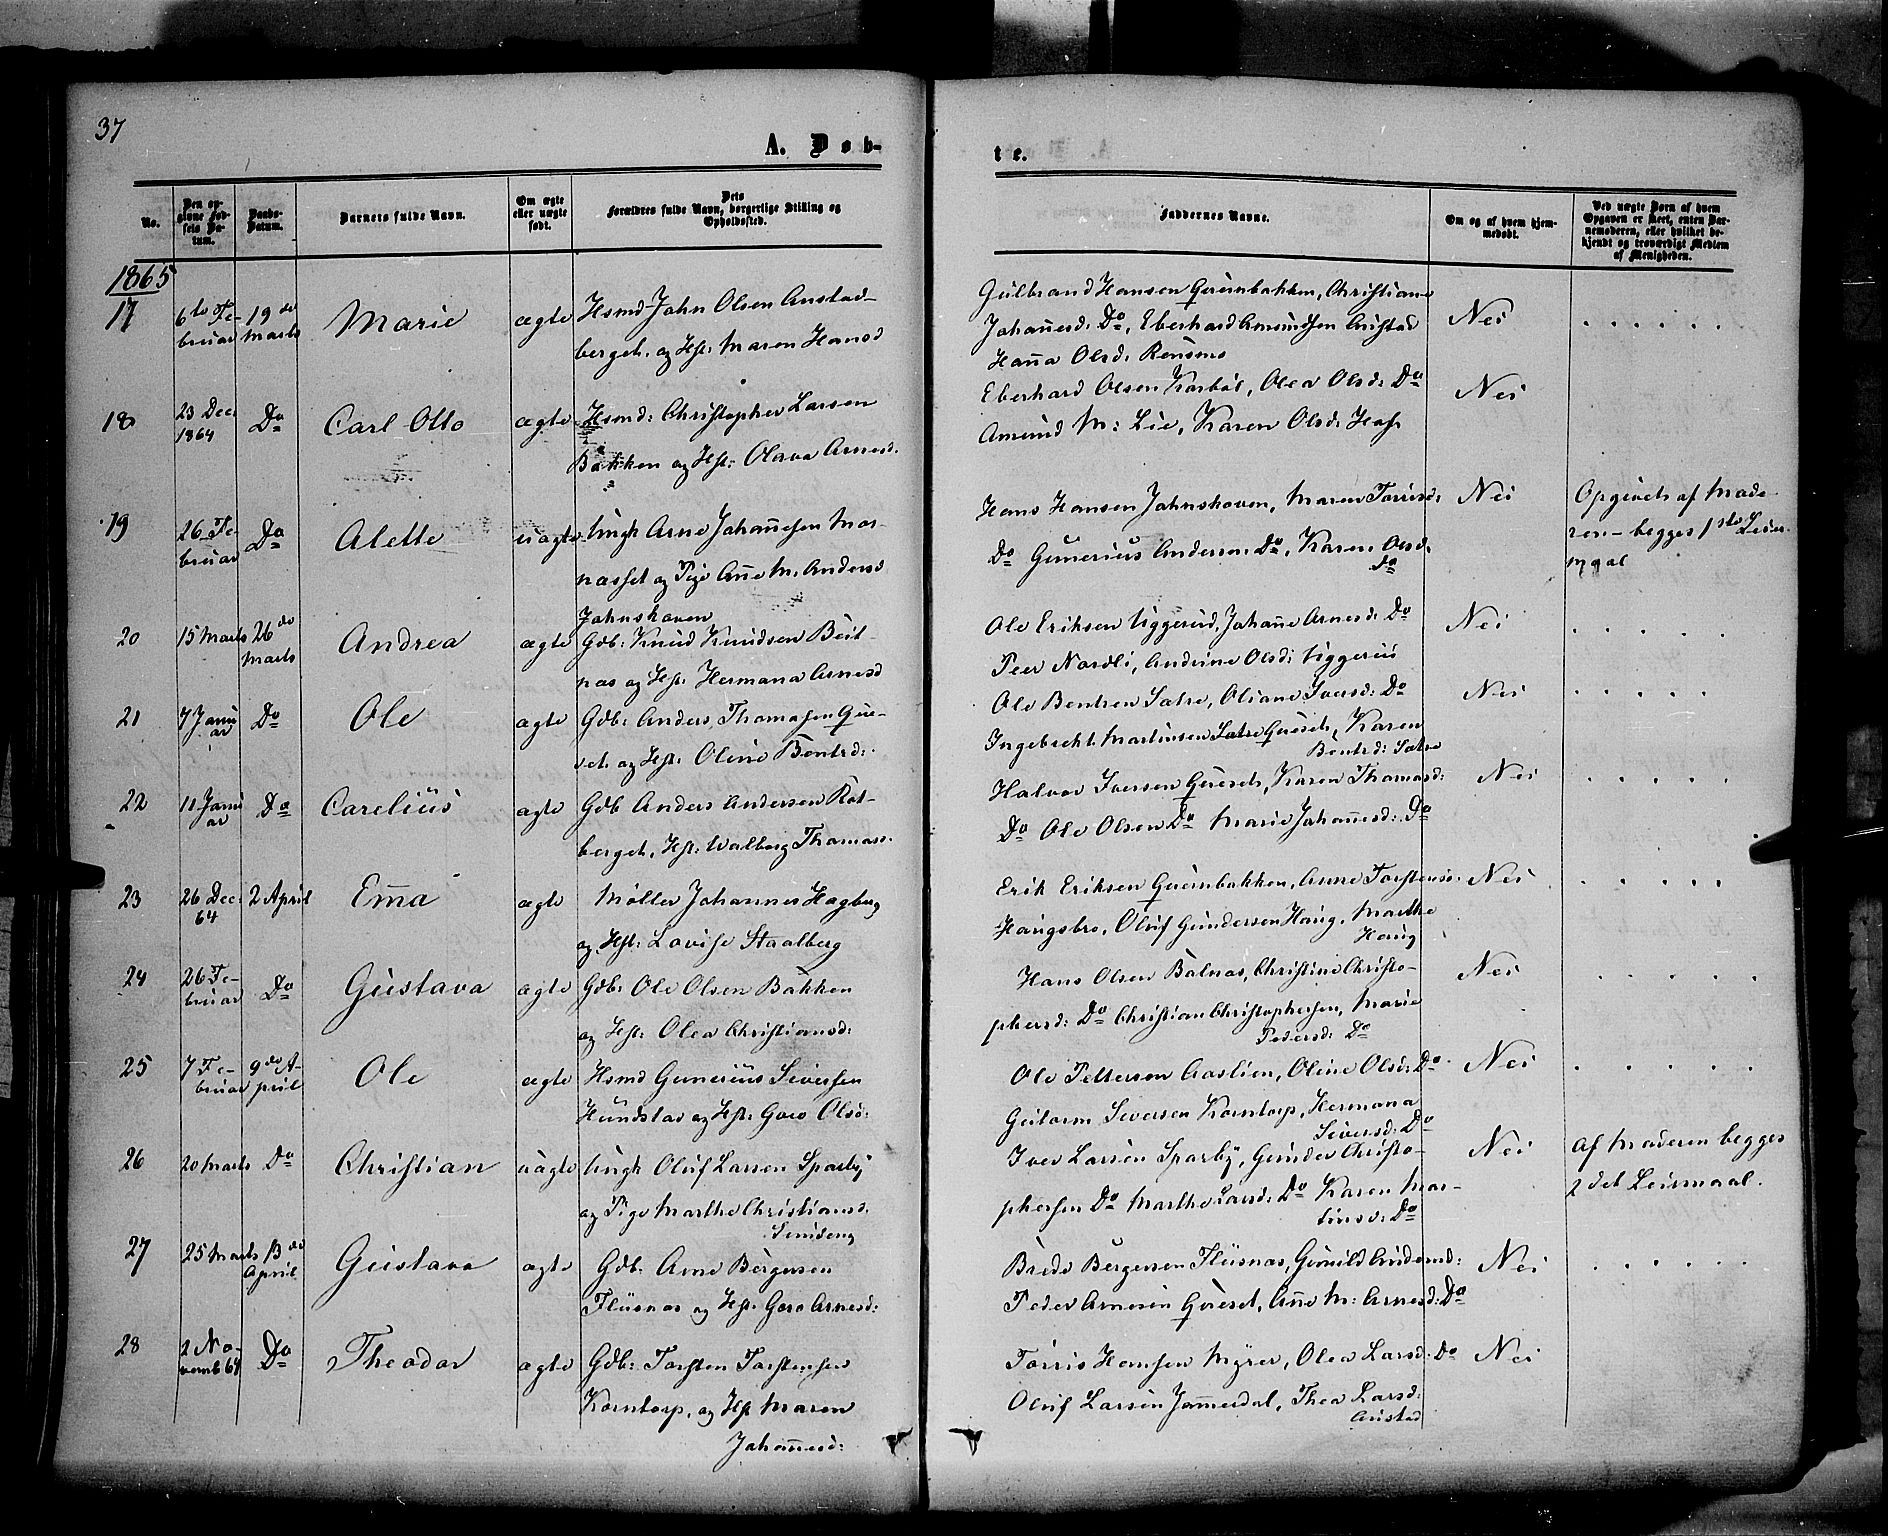 37
A. Døb-
te.
No.
Den opgivne Fødsels Datum.
Daabs-Datum.
Barnets fulde Navn.
Om ægte eller uægte født.
Dets Forældres fulde Navn, borgerlige Stilling og Opholdssted.
Faddernes Navne.
Om og af hvem hjemmedøbt.
Ved uægte Børn af hvem Opgaven er skeet, enten Barnemoderen, eller hvilket bekjendt og troværdigt Medlem af Menigheden.
1865
17 6te Februar 19de Marts Marie ægte Hsmd John Olsen Austadberget, og Hst: Maren Hansd
Gulbrand Hansen Grimbakken, Christiane
Johannesd: Do, Eberhard Amundsen Austad
Hanna Olsd:
Nei
18 23 Dec: 1864 Do Carl Otto ægte Hsmd: Christopher Larsen
Bakken og Hst: Olava Arnesd.
Eberhard Olsen Karbøl, Olea Olsd: Do
Amund M: Lie, Karen Olsd:
Nei
19 26 Februar Do Alette uægte Ungk Arne Johannesen Mor-
næsset og Pige Anne M. Andersd
Johnshoven
Hans Hansen Johnshoven, Maren Torrisd:
Do Gunerius Anderen Do, Karen Olsd:
Do
Nei
Opgivet af Mode-
ren - begges 1ste Leier-
maal
20 15 Marts 26de Marts Andrea ægte Gdb: Knud Knudsen Beit-
næs og Hst: Hermana Arnesd
Ole Eriksen Uggerud, Johanne Arnesd: Do
Peer Nordli, Andrine Olsd: Uggerud
Nei
21 7 Januar Do Ole ægte Gdb: Anders Thomasen Gue-
set og Hst: Oline Bentsd:
Ole Bentsen Sætre, Oliane Iversd: Do
Ingebrekt Martinsen Sætre Gueset, Karen
Bentsd: Sætre
Nei
22 11 Januar Do Carelius ægte Gdb Anders Andersen Rot-
berget, Hst: Walborg Thomasd.
Halvor Iversen Gueset, Karen Thomasd:
Do Ole Olsen Do Marie Johannesd: Do
Nei
23 26 Dec: 64 2 April Emma ægte Møller Johannes Hagberg
og Hst: Lovise Staalberg
Erik Eriksen Grimbakken, Anne Torstensd.
Haugsbro, Oluf Gundersen Haug, Marthe
Haug
Nei
24 26 Februar Do Gustava ægte Gdb: Ole Olsen Bakken
og Hst: Olea Christiansd:
Hans Olsen Balnæs, Christine Christo-
phersd: Do Christian Christophersen, Marie
Pedersd: Do
Nei
25 7 Februar 9de April Ole ægte Hsmd Gunerius Siversen
Hundstad og Hst: Goro Olsd:
Ole Pettersen Aaslien, Oline Olsd: Do
Gutorm Siversen Korntorp, Hermana
Siversd: Do
Nei
26 20 Marts Do Christian uægte Ungk Oluf Larsen Sparby
og Pige Marthe Christiansd.
Iver Larsen Sparby, Gunder Christo-
phersen Do Marthe Larsd: Do Karen Mar-
tinsd: Do
Nei
af Moderen begges
2det Leiermaal.
27 25 Marts 13de April Gustava ægte Gdb: Arne Børgersen
Flusnæs og Hst: Goro Arnesd:
Brede Børgersen Flusnæs, Gunild Andersd:
Peder Arnesen Gueset, Anne M: Arnesd: Do
Nei
28 2 Novemb 64 Do Theodor ægte Gdb: Torsten Torstensen
Korntorp, og Hst Maren
Johannesd:
Torris Hansen Myrer, Olea Larsd: Do
Oluf Larsen Jammerdal, Thea Larsd:
Austad
Nei